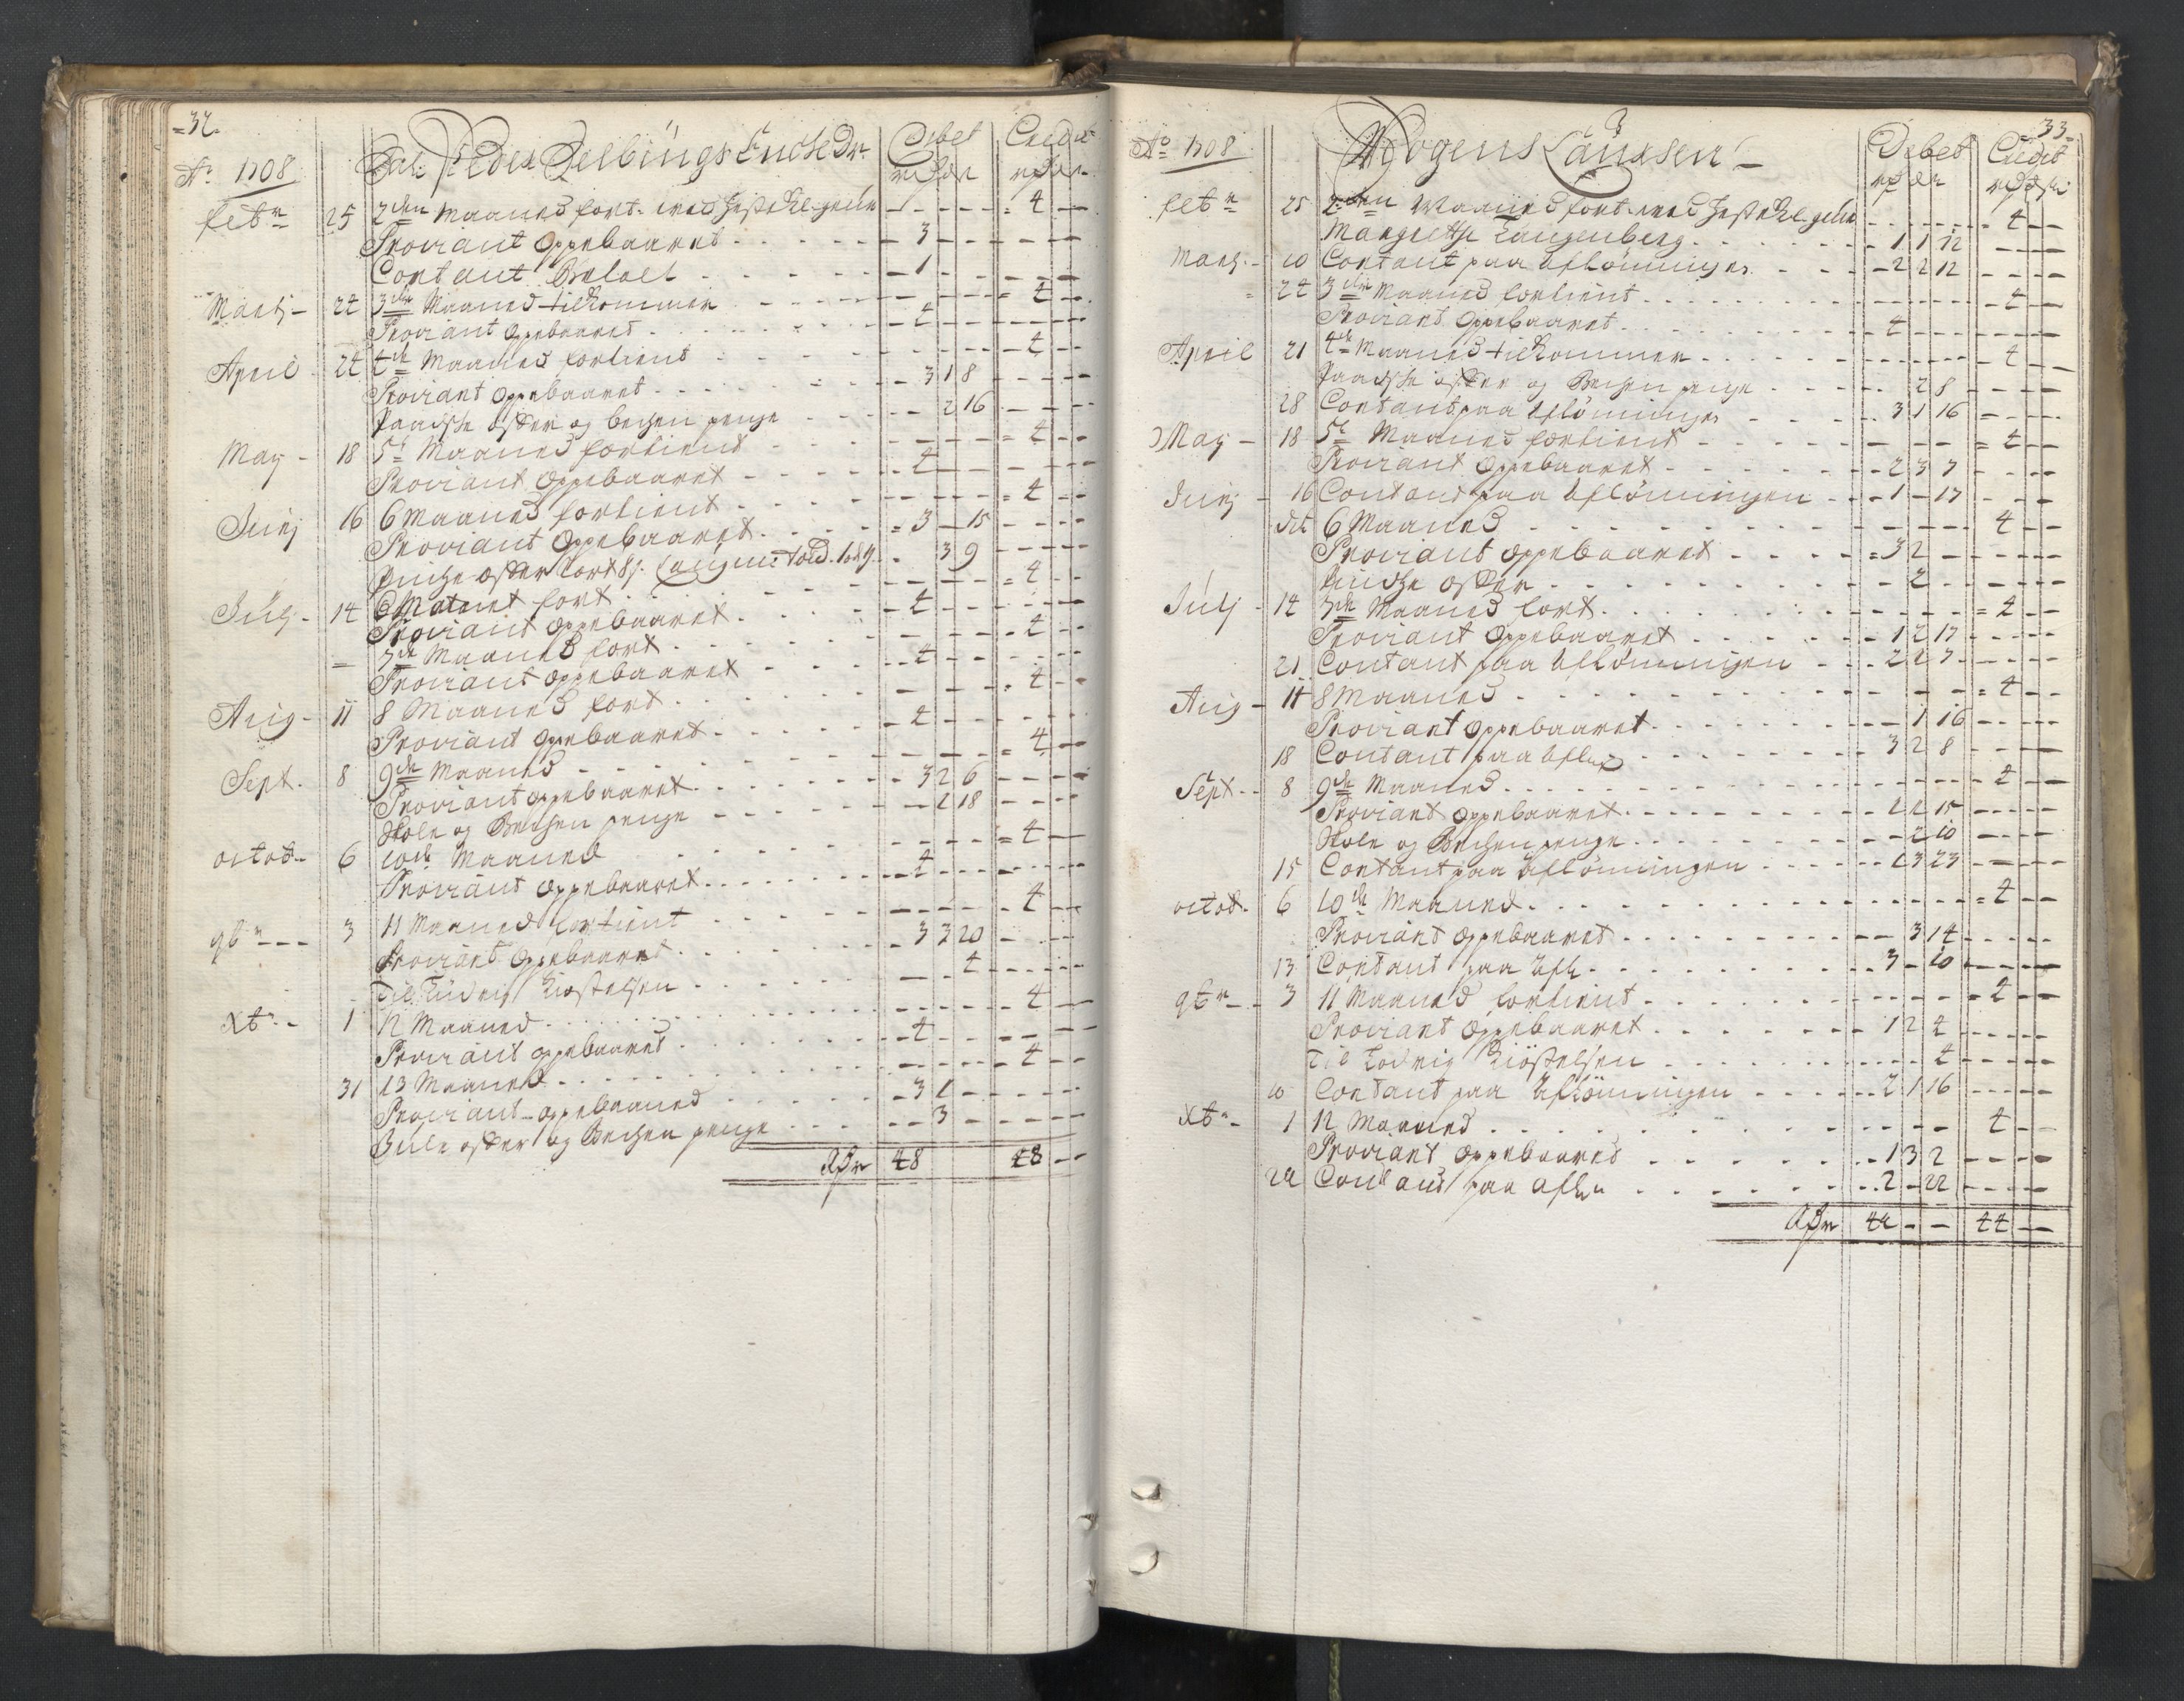 =32.
Ao 1708
Sal: Peder Selbüngs Encke Dr.
Debet
Credit
Febr 25 2den Maaned fort. - - - - = 4 - -
Proviant Oppebaaret - 3 - - - - -
Contant Betalt - 1 - - - - -
Martj - 24 3de Maaned tilkommer - - - = 4 - -
Proviant Oppebaaret - 4 - - - - -
April - 24 4de Maaned fortient - - - - 4 - -
Proviant Oppebaaret - 3 1 8 - - -
Paaske offer og becken penge - - 2 16 - - -
May - 18 5te Maaned fortient - - - = 4 - -
Proviant Oppebaaret - 4 - - - - -
Junj 16 6 Maaned fortient - - - = 4 - -
Proviant Oppebaaret = 3 - 15 - - -
Pintze offer 3 9 - - -
Julj - 14 6 Maanet fort - - - = 4 - -
Proviant Oppebaaret - 4 - - - - -
= 7de Maaned fort - - - - 4 - -
Proviant oppebaaret - 4 - - - - -
Aug - 11 8 Maaned fort - - - - 4 - -
Proviant Oppebaaret - 4 - - - - -
Sept. 8 9de Maaned - - - = 4 - -
Proviant oppebaaret - 3 2 6 - - -
Hole og Becken penge - - 1 18 - - -
octob - 6 10de Maaned - - - = 4 - -
Proviant Oppebaaret - 4 - - - - -
9br - - - 3 11 Maaned fortient - - - - 4 - -
Proviant Oppebaaret - 3 3 20 - - -
Til Ludvig Kiøstelsen - - 4 - - -
Xbr - 1 12 Maaned - - - - 4 - -
Proviant oppebaaret - 4 - - - - -
31 13 Maaned - - - - 4 - -
Proviant oppebaaret - 3 1 - - - -
Jule offer og Becken penge - - 3 - - - -
Rdr 48 48 - -
33
Ao 1708
Mogens Laursen
Debet
Credit
Febr 25 2den Maaned fort. - - - - 4 - -
Margrethe Langenberg - 1 1 12 - - -
Martj - 10 Contant paa afLønningen - 2 2 12 - - -
= 24 3de Maaned fortient - - - - 4 - -
Proviant Oppebaaret 4 - - - - -
April 21 4de Maaned tilkommer - - - - 4 - -
Paaske offer og Becken penge - - 2 8 - - -
28 Contant paa afLønningen 3 1 16 - - -
May - 18 5te Maaned fortient - - - = 4 - -
Proviant Oppebaaret - 2 3 7 - - -
Junj - 16 Contant paa afLønningen - 1 - 17 - - -
dito 6 Maaned - - - - 4 - -
Proviant oppebaaret = 3 2 - - - -
Pintze offer - - 2 - - - -
Julj - 14 7de Maaned fort - - - = 4 - -
Proviant Oppebaaret - 1 2 17 - - -
21 Contant paa afLønningen - 2 1 7 - - -
Aug - 11 8 Maaned - - - = 4 - -
Proviant oppebaaret - - 1 16 - - -
18 Contant paa afl 3 2 8 - - -
Sept - 8 9de Maaned - - - - 4 - -
Proviant oppebaaret - - -
Hole og Becken penge - - 2 10 - - -
15 Contant paa afLønningen - 1 3 23 - - -
octob. 6 10de Maaned - - - = 4 - -
Proviant oppebaaret - - 3 14 - - -
13 Contant paa afl. 3 - 10 - - -
9br - - 3 11 Maaned fortient - - - = 4 - -
Proviant oppebaaret - 1 2 4 - - -
Til Lodvig Kiøstelsen - - - 4 - - -
10 Contant paa afLønningen 2 1 16 - - -
Xbr - 1 12 Maaned - - - 4 - -
Proviant oppebaaret - 1 3 2 - - -
Contant paa afl. 2 - 22 - - -
Rdr 44 - - 44 - -